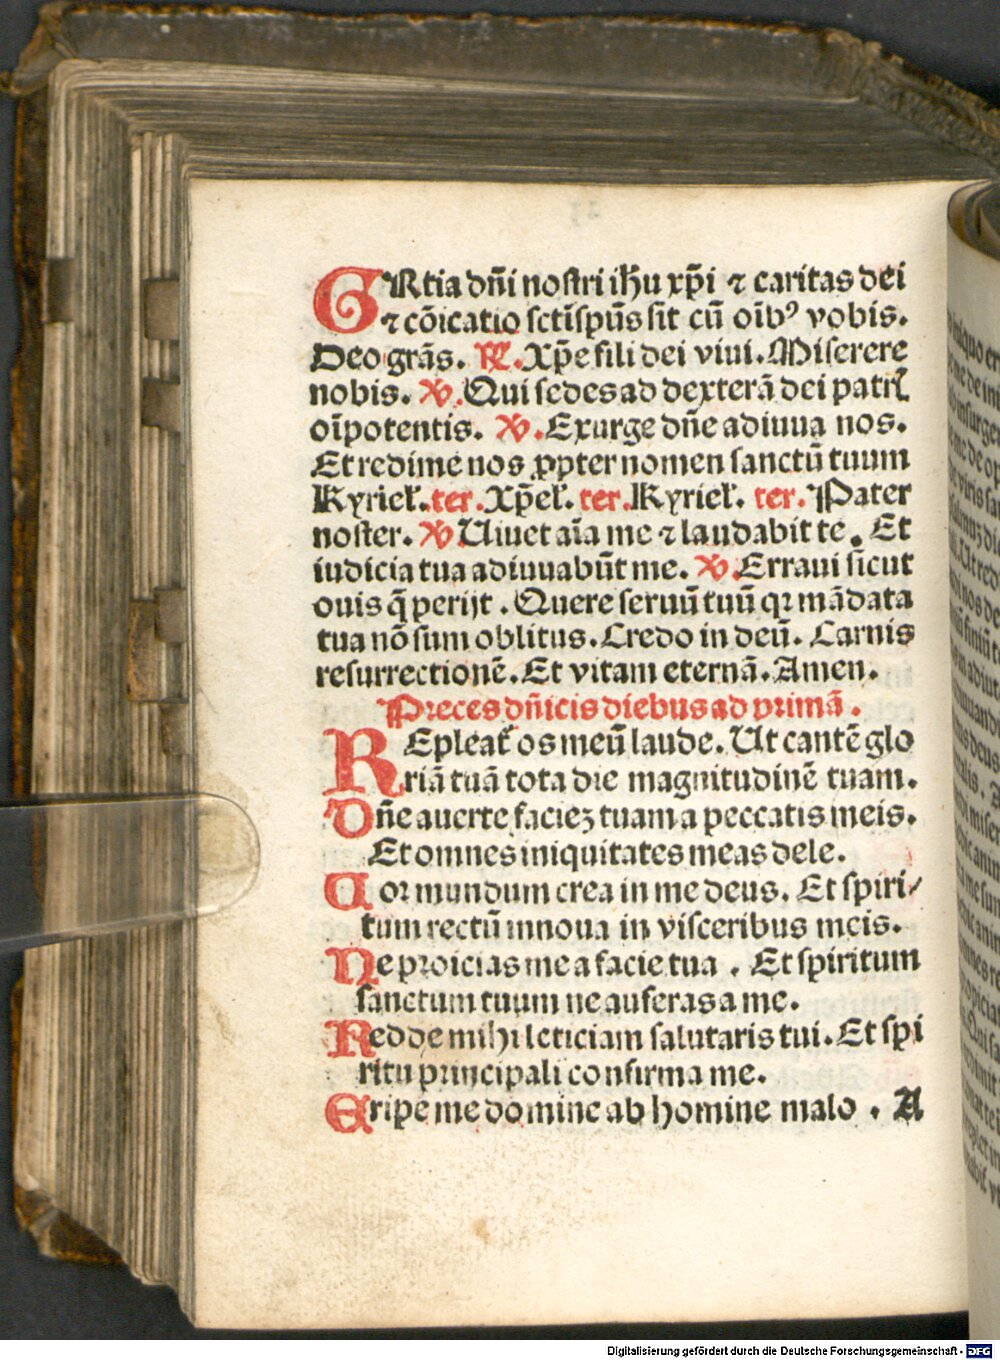 GRtia dñi nostri ihũ xp̃i ⁊ caritas dei
⁊ cõicatio sctĩspũs sit cũ oĩbꝰ vobis.
Deo grãs. ℟. Xp̃e fili dei viui. Miserere
nobis. ℣. Qui sedes ad dexterã dei patrꝭ
oĩpotentis. ℣. Exurge dñe adiuua nos.
Et redime nos ꝓpter nomen sanctũ tuum
Kyriel̕. ter. Xp̃el̕. ter. Kyriel̕. ter. Pater
noster. ℣. Uiuet aĩa me ⁊ laudabit te. Et
iudicia tua adiuuabũt me. ℣. Erraui sicut
ouis q̃ perijt. Quere seruũ tuũ qꝛ mãdata
tua nõ sum oblitus. Credo in deũ. Carnis
resurrectionẽ. Et vitam eternã. Amen.
Preces dñicis diebus ad primã.
REpleat̕ os meũ laude. Ut cantẽ glo
riã tuã tota die magnitudinẽ tuam.
Dñe auerte facieꝫ tuam a peccatis meis.
Et omnes iniquitates meas dele.
Cor mundum crea in me deus. Et spiri⸗
tum rectũ innoua in visceribus meis.
Ne proicias me a facie tua. Et spiritum
sanctum tuum ne auferas a me.
Redde mihi leticiam salutaris tui. Et spi
ritu principali confirma me.
Eripe me domine ab homine malo. A
Digitalisierung gefördert durch die Deutsche Forschungsgemeinschaft - DFG